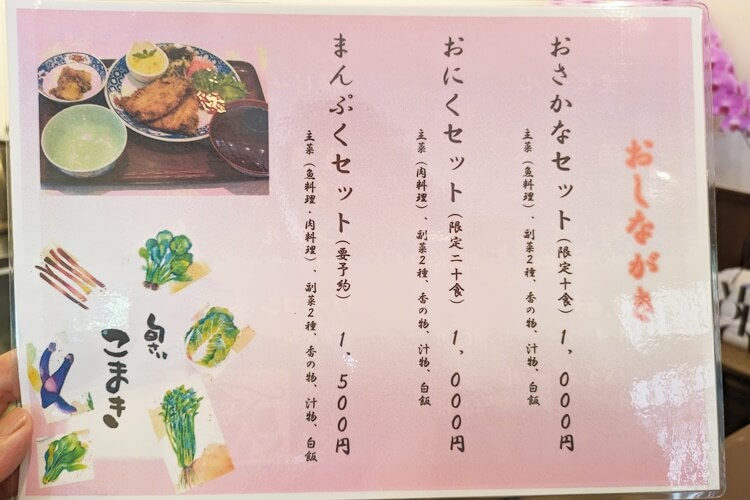 おしながき
おさかなセット（限定十食）１，０００円
主菜（魚料理）、副菜２種、香の物、汁物、白飯
おにくセット（限定二十食）１，０００円
主菜（肉料理）、副菜２種、香の物、汁物、白飯
まんぷくセット（要予約）１，５００円
主菜（魚料理・肉料理）、副菜２種、香の物、汁物、白飯
こまき